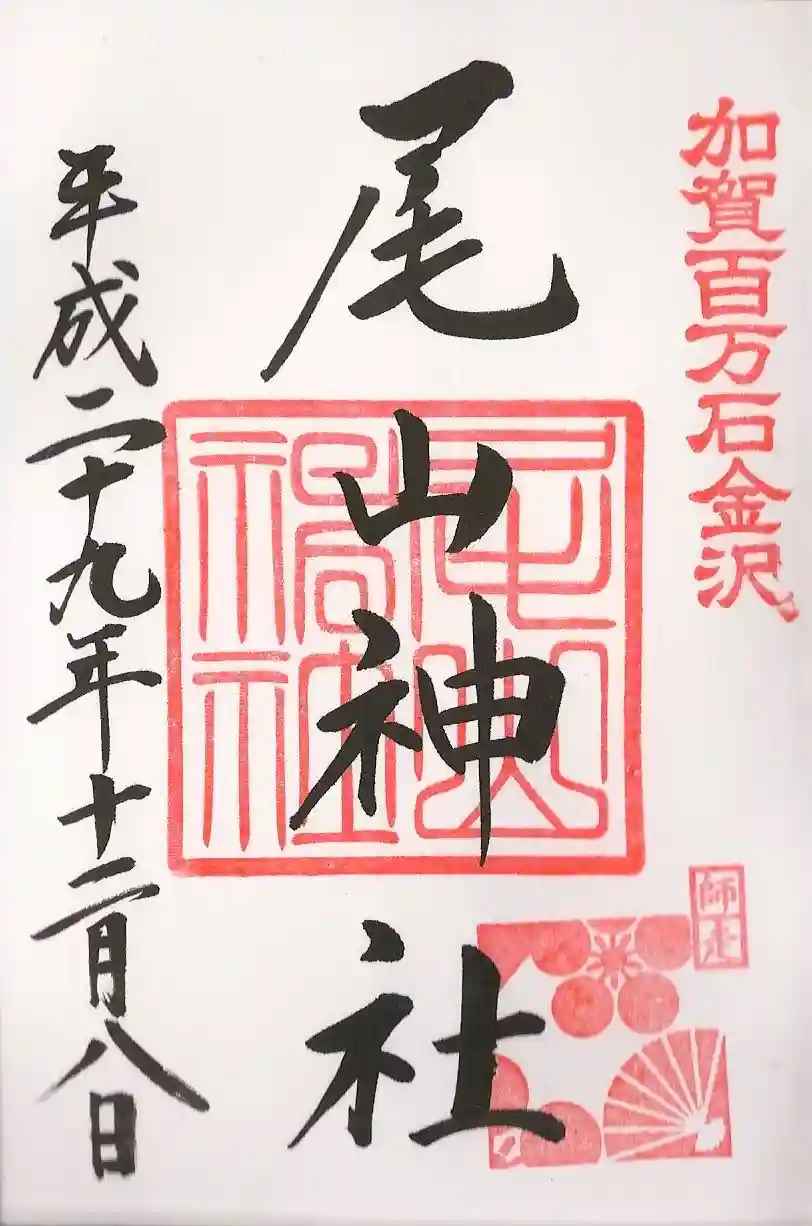 加賀百万石金沢
師走
尾山神社
尾山神社
平成二十九年十二月八日